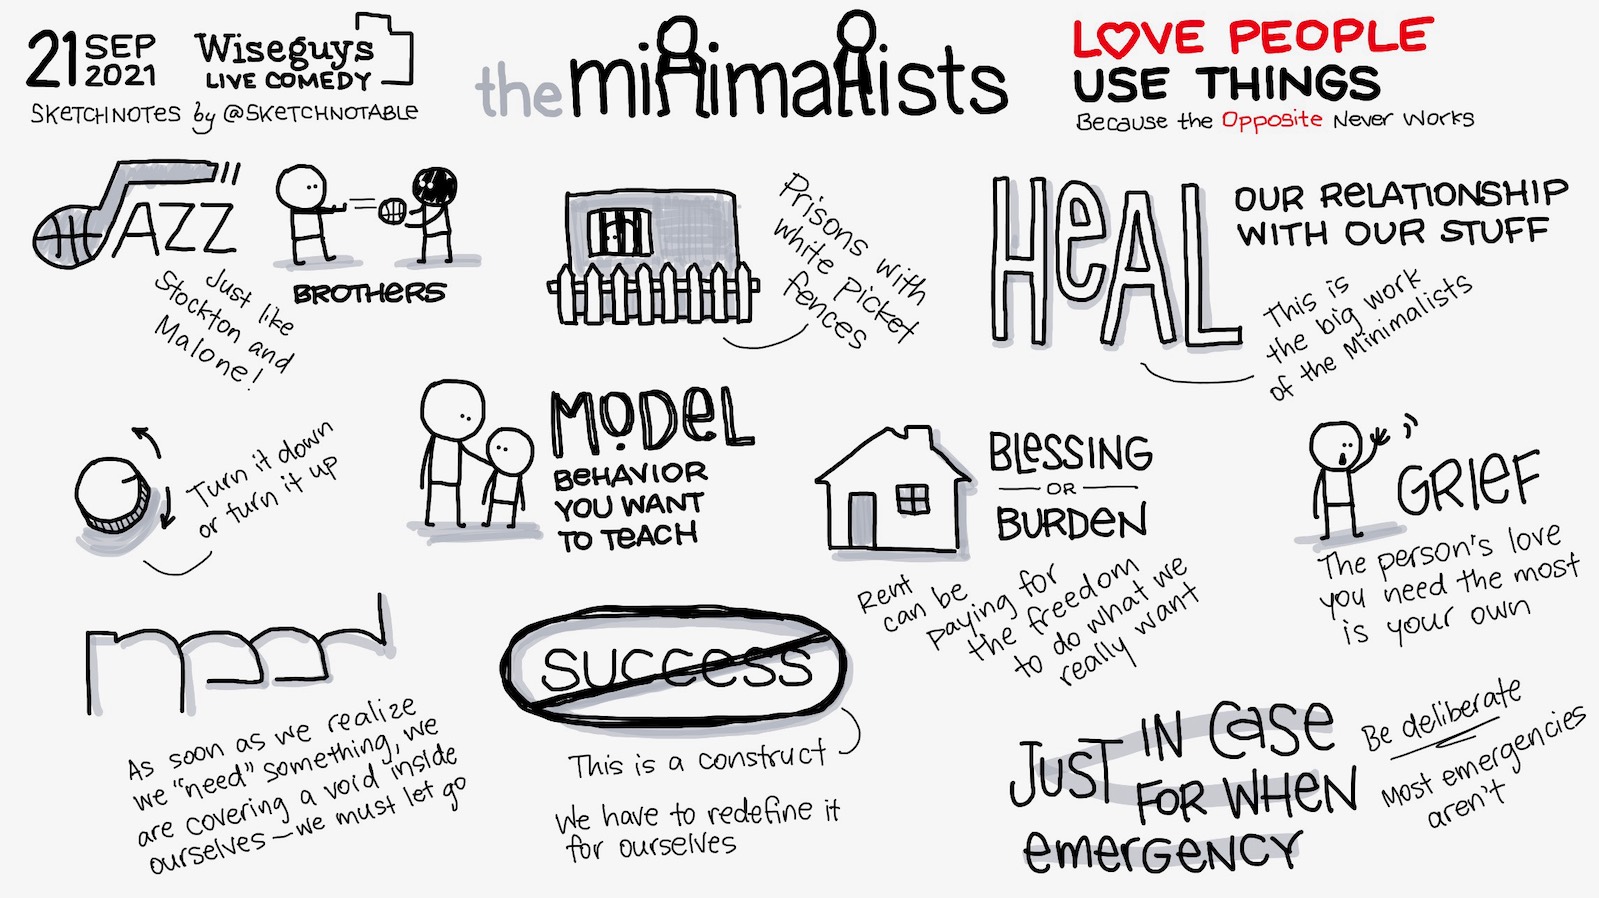 21 SEP
2021
Wiseguys
LIVE COMEDY
SKETCHNOTES by @SKETCHNOTABLE
the minimalists
LOVE PEOPLE
USE THINGS
Because the Opposite Never Works
JAZZ
Just like
Stockton and
Malone!
BROTHERS
Prisons with
white picket
fences
HEAL
OUR RELATIONSHIP
WITH OUR STUFF
This is
the big work
of the Minimalists
Turn it down
or turn it up
MODEL
BEHAVIOR
YOU WANT
TO TEACH
BLESSING
OR
BURDEN
Rent
can be
paying for
the freedom
to do what we
really want
GRIEF
The person's love
you need the most
is your own
need
As soon as we realize
we "need" something, we
are covering a void inside
ourselves – we must let go
SUCCESS
This is a construct
We have to redefine it
for ourselves
JUST IN CASE
FOR WHEN
EMERGENCY
Be deliberate
Most emergencies
aren't